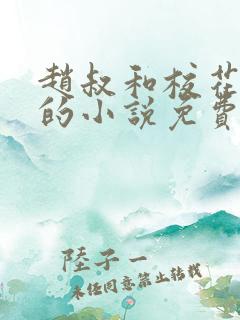 趙叔和校花
的小說免費
陸子一
未經同意禁止轉載